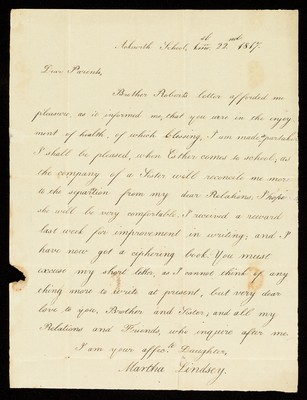 Ackworth School, 22nd 1817.
Dear Parents,
Brother Roberts letter afforded me
pleasure, as it informed me, that you are in the enjoy
ment of health, of which blessing, I am made partaker
I shall be pleased, when Esther comes to school, as
the company of a Sister will reconcile me more
to the separation from my dear Relations, I hope
she will be very comfortable. I received a reward
last week for improvement in writing; and I
have now got a ciphering book. You must
excuse my short letter, as I cannot think of any
thing more to write at present, but very dear
love to you, Brother and Sister; and all my
Relations and Friends, who inquire after me.
I am your affec.te Daughter,
Martha Lindsey.